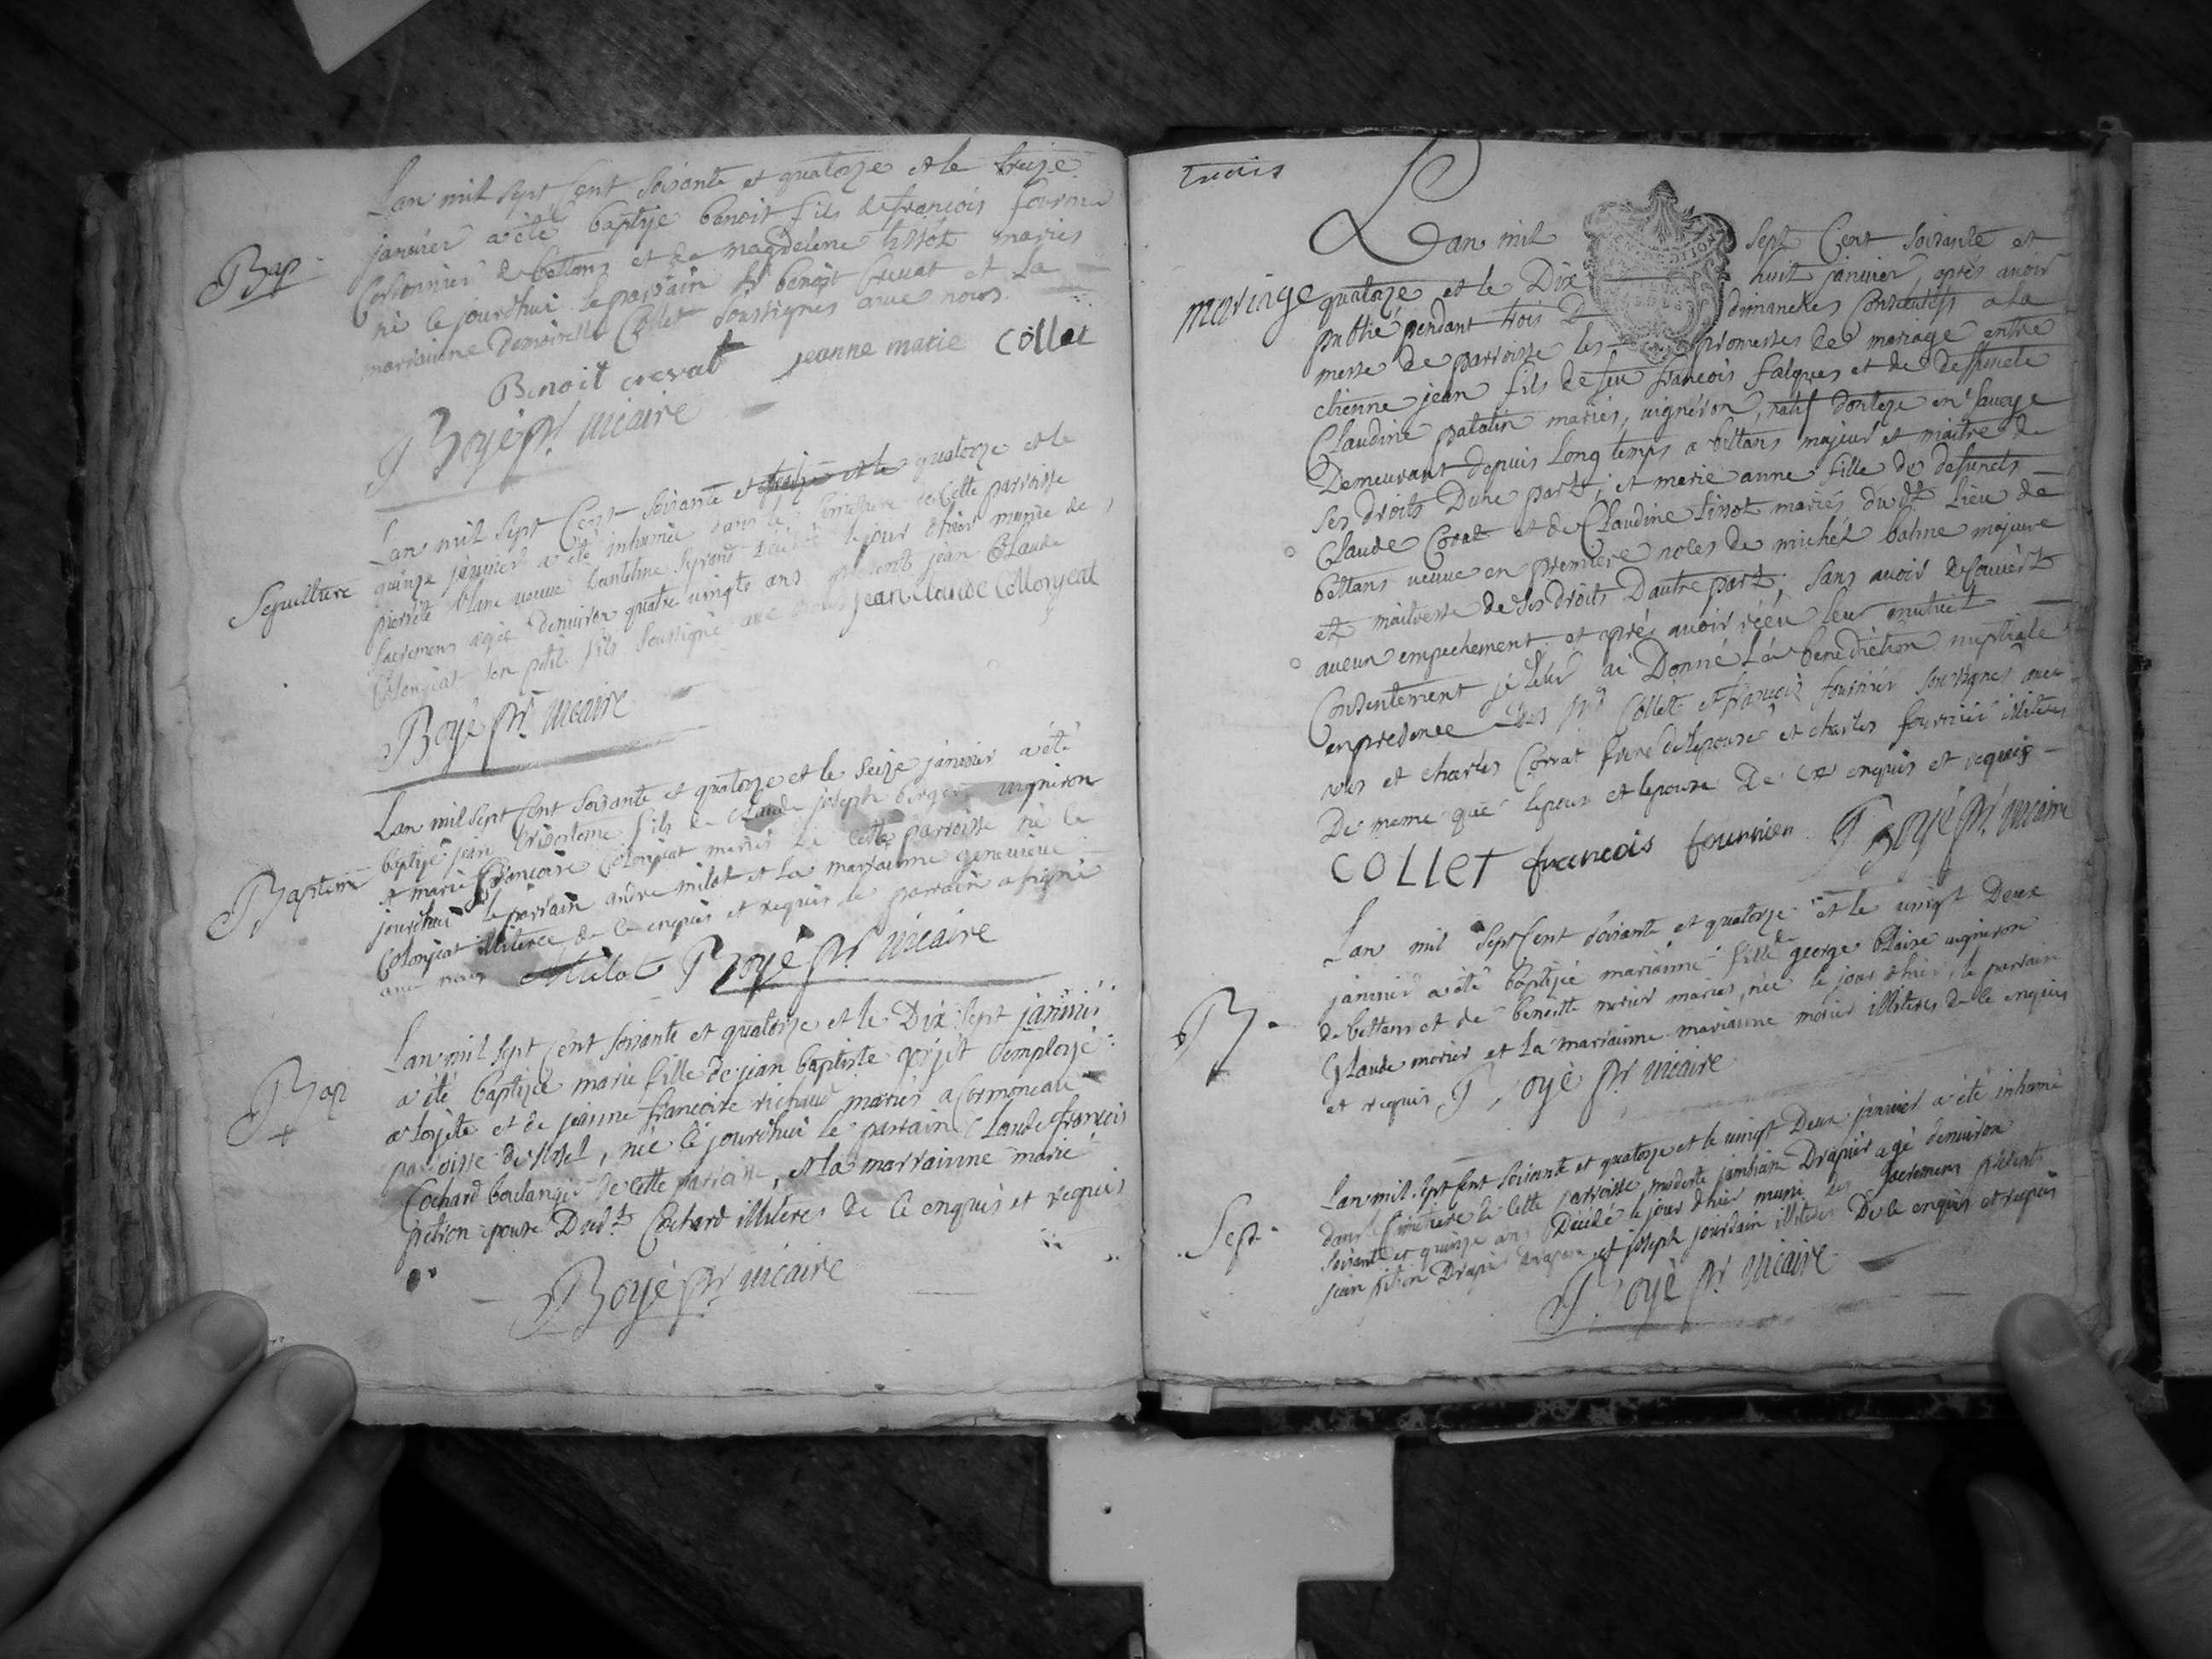 Lan mil sept Cent soixante et quatorze et le treize
Bap
janvier a été baptisé benoit fils de françois
Cordonnier de bettans et de magdeleine tissot mariés
né ce jourdhui le parrain benoit et la
marrainne demoiselle Collet soussignés avec nous
Benoit crevat jeanne marie collet
Boyé ptr vicaire
Lan mil sept Cent soixante et quatorze et le
Sepulture
quinze janvier a été inhumée dans le cimetiere de cette parroisse
pierrete blanc veuve décédée le jour dhier munie de
sacremens agée denviron quatre vingts ans present jean Claude
Colonjeat son petit fils soussigné avec nous jean claude collonjeat
Boyé ptr vicaire
Lan mil sept Cent soixante et quatorze et le seize janvier a été
Bapteme
baptisé jean fils de Claude joseph berger vigneron
et marie françoise Colonjeat mariés de cette parroisse né le
jourdhui le parrain andre milot et la marrainne genevieve
Colonjeat illiterée de ce enquis et requis le parrain a signé
avec nous Milot Boyé ptr vicaire
Lan mil sept Cent soixante et quatorze et le Dix sept janvier
Bap
a été baptisée marie fille de jean baptiste employé
et de jeanne françoise richaud mariés a Cormoncau
parroisse de , née ce jourdhui le parrain Claude françois
Cochard boulanger de cette parroisse, et la marrainne marie
pitron epouse Dudt Cochard illiteres de ce enquis et requis
Boyé ptr vicaire
trois
Lan mil sept Cent soixante et
mariage
quatorze et le Dix huit janvier, après avoir
publié pendant trois dimanches consecutifs a la
messe de parroisse les promesses de mariage entre
etienne jean fils de feu françois falques et de deffuncte
Claudine patatin mariés, vigneron, natif en Savoye
Demeurant depuis long temps a bettans majeur et maitre de
ses droits Dune part, et marie anne fille de defuncts
Claude Corat et de Claudine tissot mariés dudt lieu de
bettans veuve en premiere noces de michel balme majeure
et maitresse de ses droits Dautre part, sans avoir decouvert
aucun empechement et après avoir reçu leur mutuel
Consentement je leur ai Donné la benediction nuptiale
en presence des Srs Collet et françois fournier soussignés avec
nous et charles Corrat frere de lepouse et charles fournier illiteres
De meme que lepoux et lepouse De ce enquis et requis
COLLET francois fournier Boyé ptr vicaire
Lan mil sept Cent soixante et quatorze et le vingt Deux
B.
janvier a été baptisée marianne fille de george blaise vigneron
de bettans et de benoitte morier mariés, née le jour dhier, le parrain
Claude morier et la marrainne marianne morier illiteres de ce enquis
et requis Boyé ptr vicaire
Lan mil sept Cent soixante et quatorze et le vingt Deux janvier a été inhumé
Sep.
dans le cimetiere de cette parroisse modeste Drapier agé denviron
soixante et quinze ans Décédé le jour dhier muni des sacremens present
jean pitron Drapier et joseph jourdain illiteres De ce enquis et requis
Boyé ptr vicaire